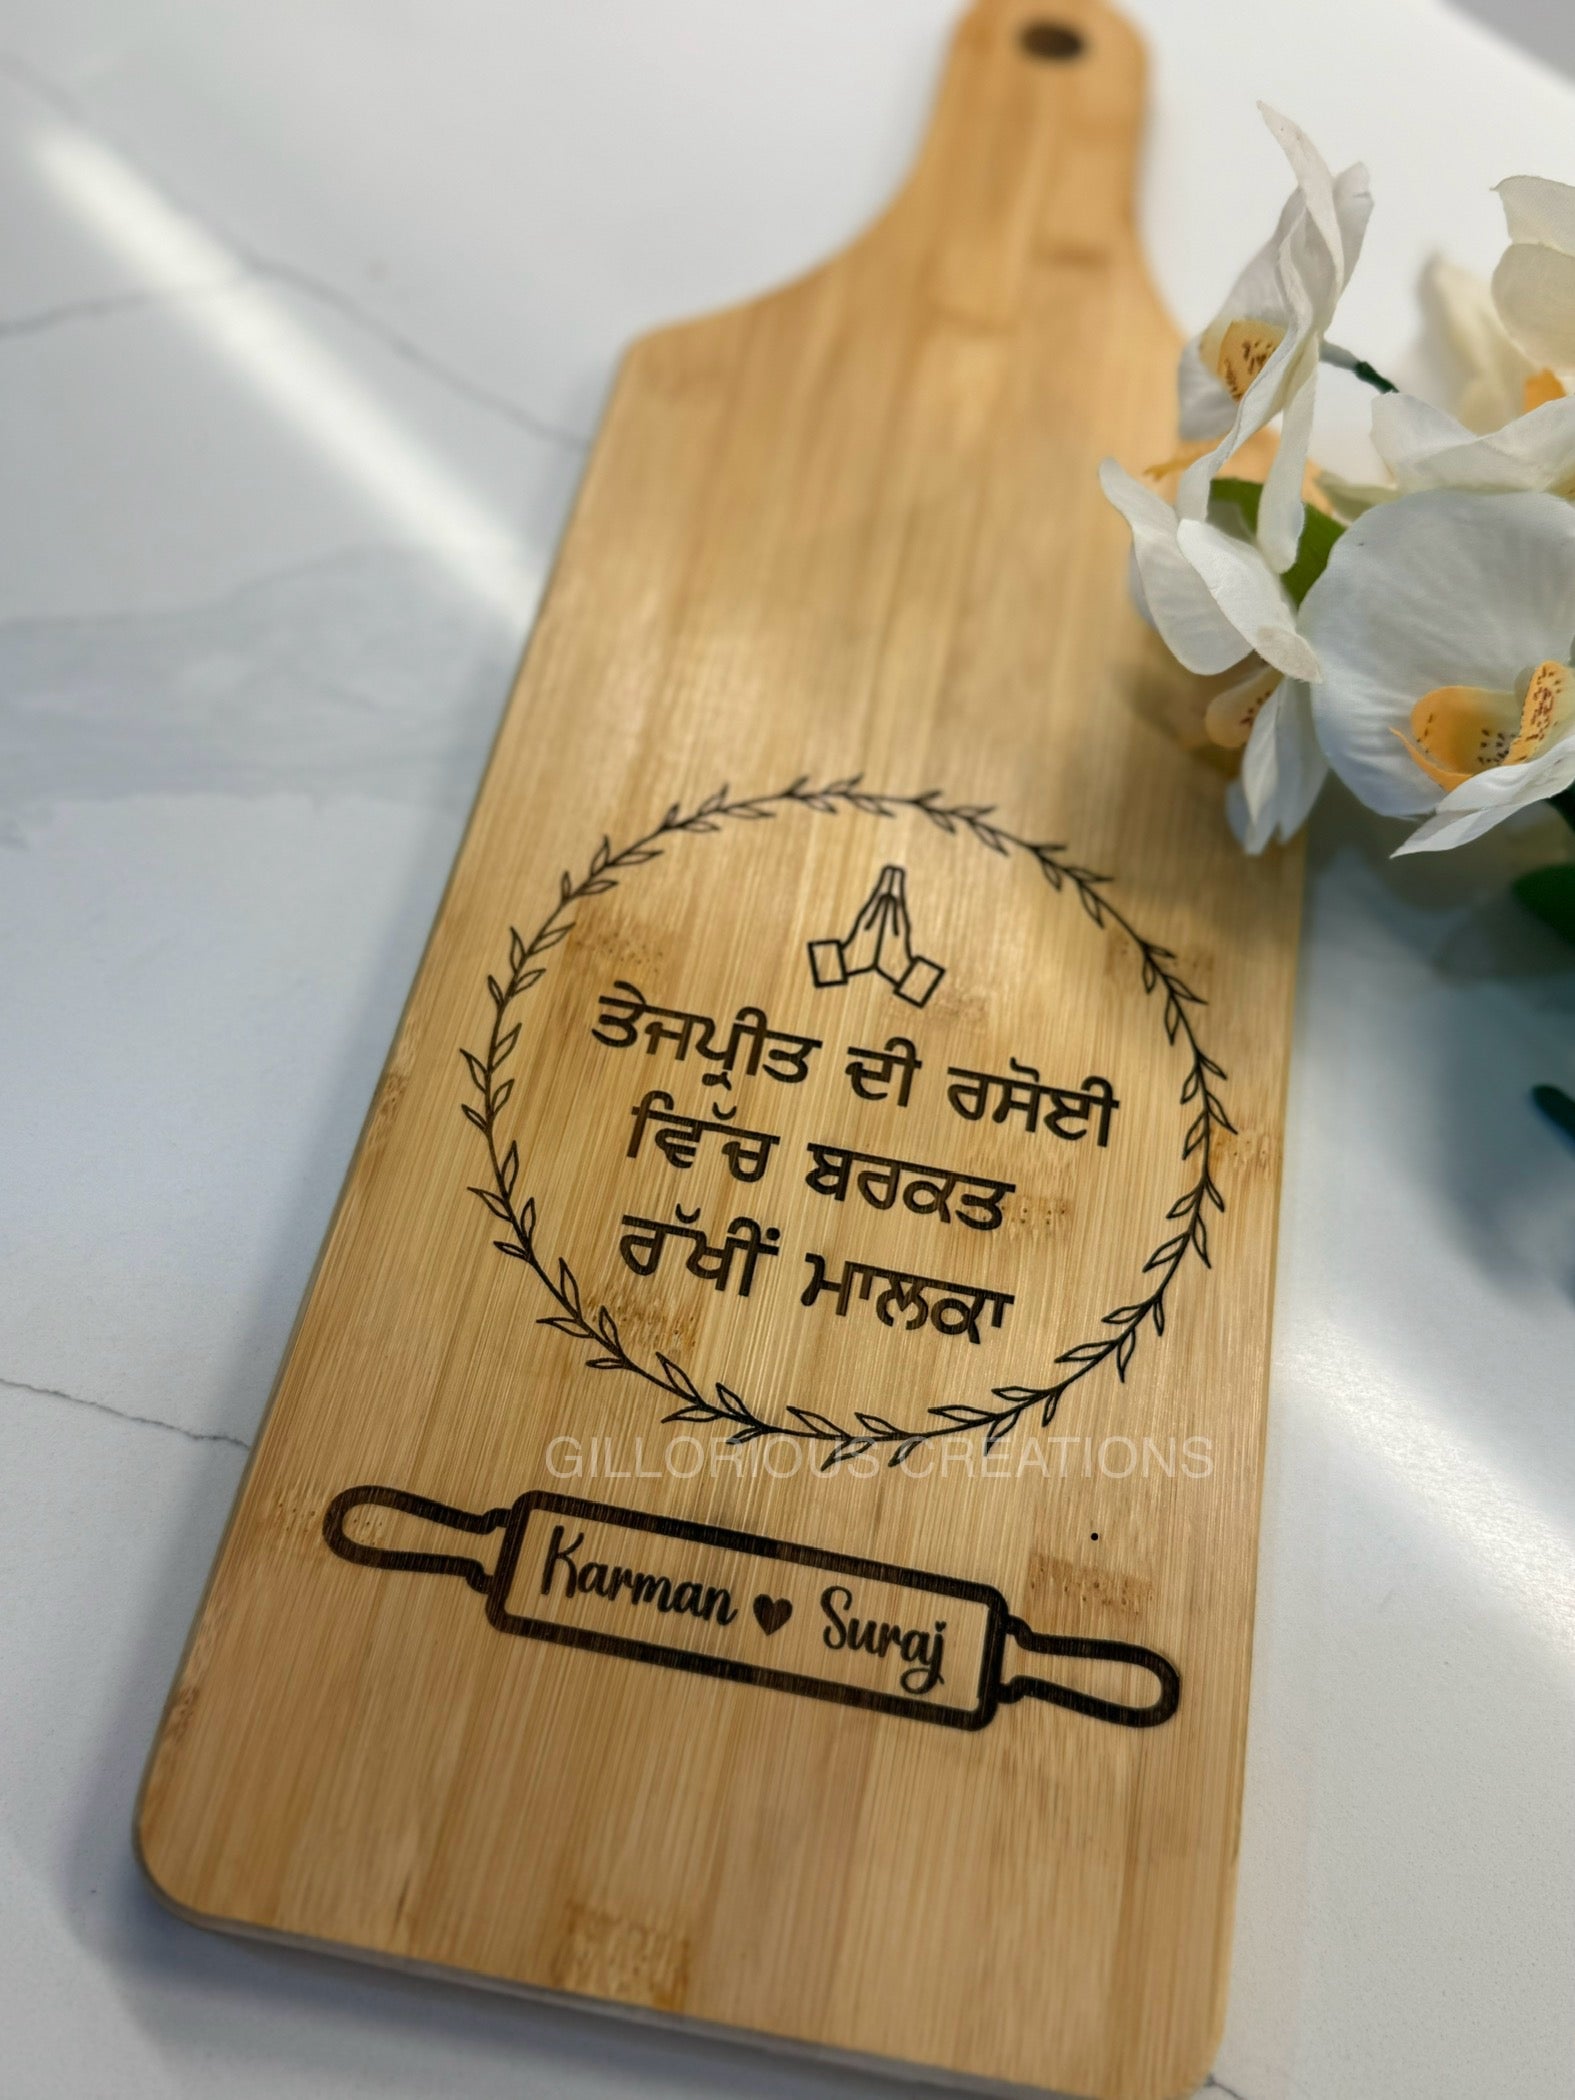 ਤੇਜਪ੍ਰੀਤ ਦੀ ਰਸੋਈ
ਵਿੱਚ ਬਰਕਤ
ਰੱਖੀਂ ਮਾਲਕਾ
GILLORIOUS CREATIONS
Karman ♥ Suraj